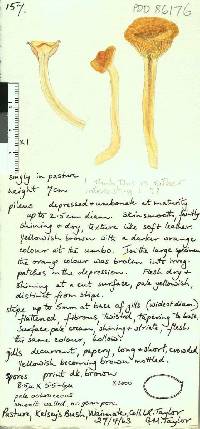 157.
PDD 86176
singly in pasture
height 7cm
pileus depressed & umbonate at maturity
up to 2.5cm diam. Skin smooth, faintly
shining & dry, texture like soft leather
yellowish brown with a darker orange
colour at the umbo. In the large specimen
the orange colour was broken into irreg.
patches in the depression. Flesh dry &
shining at a cut surface, pale yellowish,
distinct from stipe.
stipe up to 5mm at base of gills (widest diam.)
flattened fibrous twisted, tapering to base.
Surface pale cream, shining & striate. flesh
the same colour, hollow.
gills decurrent, papery, long & short, crowded
yellowish becoming brown, mottled.
spores print dk, brown
8-9μ x 5.5-6μ x 2000
pale ochraceous
smooth walled, no germ pore.
Pasture, Kelsey's Bush, Waimate, Coll. G. Taylor
27/4/63 G.M. Taylor